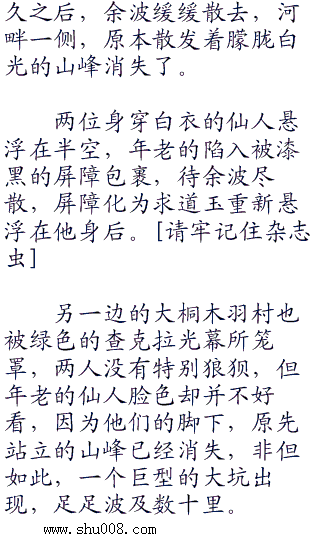 久之后，余波缓缓散去，河
畔一侧，原本散发着朦胧白
光的山峰消失了。
两位身穿白衣的仙人悬
浮在半空，年老的陷入被漆
黑的屏障包裹，待余波尽
散，屏障化为求道玉重新悬
浮在他身后。[请牢记住杂志
虫]
另一边的大桐木羽村也
被绿色的查克拉光幕所笼
罩，两人没有特别狼狈，但
年老的仙人脸色却并不好
看，因为他们的脚下，原先
站立的山峰已经消失，非但
如此，一个巨型的大坑出
现，足足波及数十里。
www.shu008.com